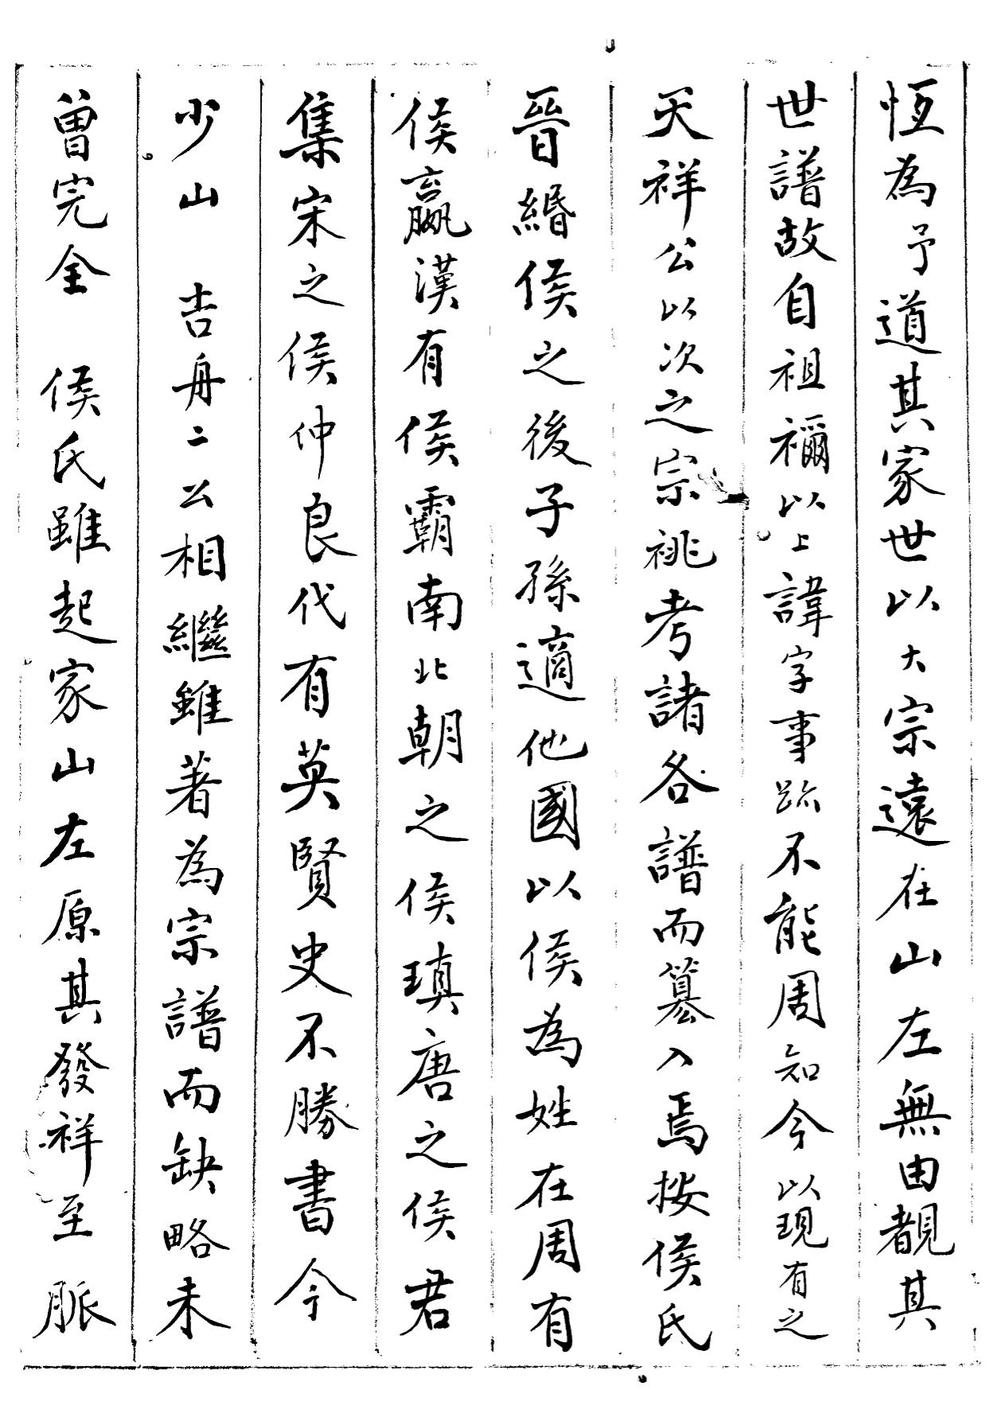 恆為予道其家世以大宗遠在山左無由覩其
世譜故自祖禰以上諱字事跡不能周知今以現有之
天祥公以次之宗祧考諸各譜而纂入焉按侯氏
晉緡侯之後子孫適他國以侯為姓在周有
侯嬴漢有侯霸南北朝之侯瑱唐之侯君
集宋之侯仲良代有英賢史不勝書今
少山 吉舟二公相繼雖著為宗譜而缺略未
曾完全 侯氏雖起家山左原其發祥至脈